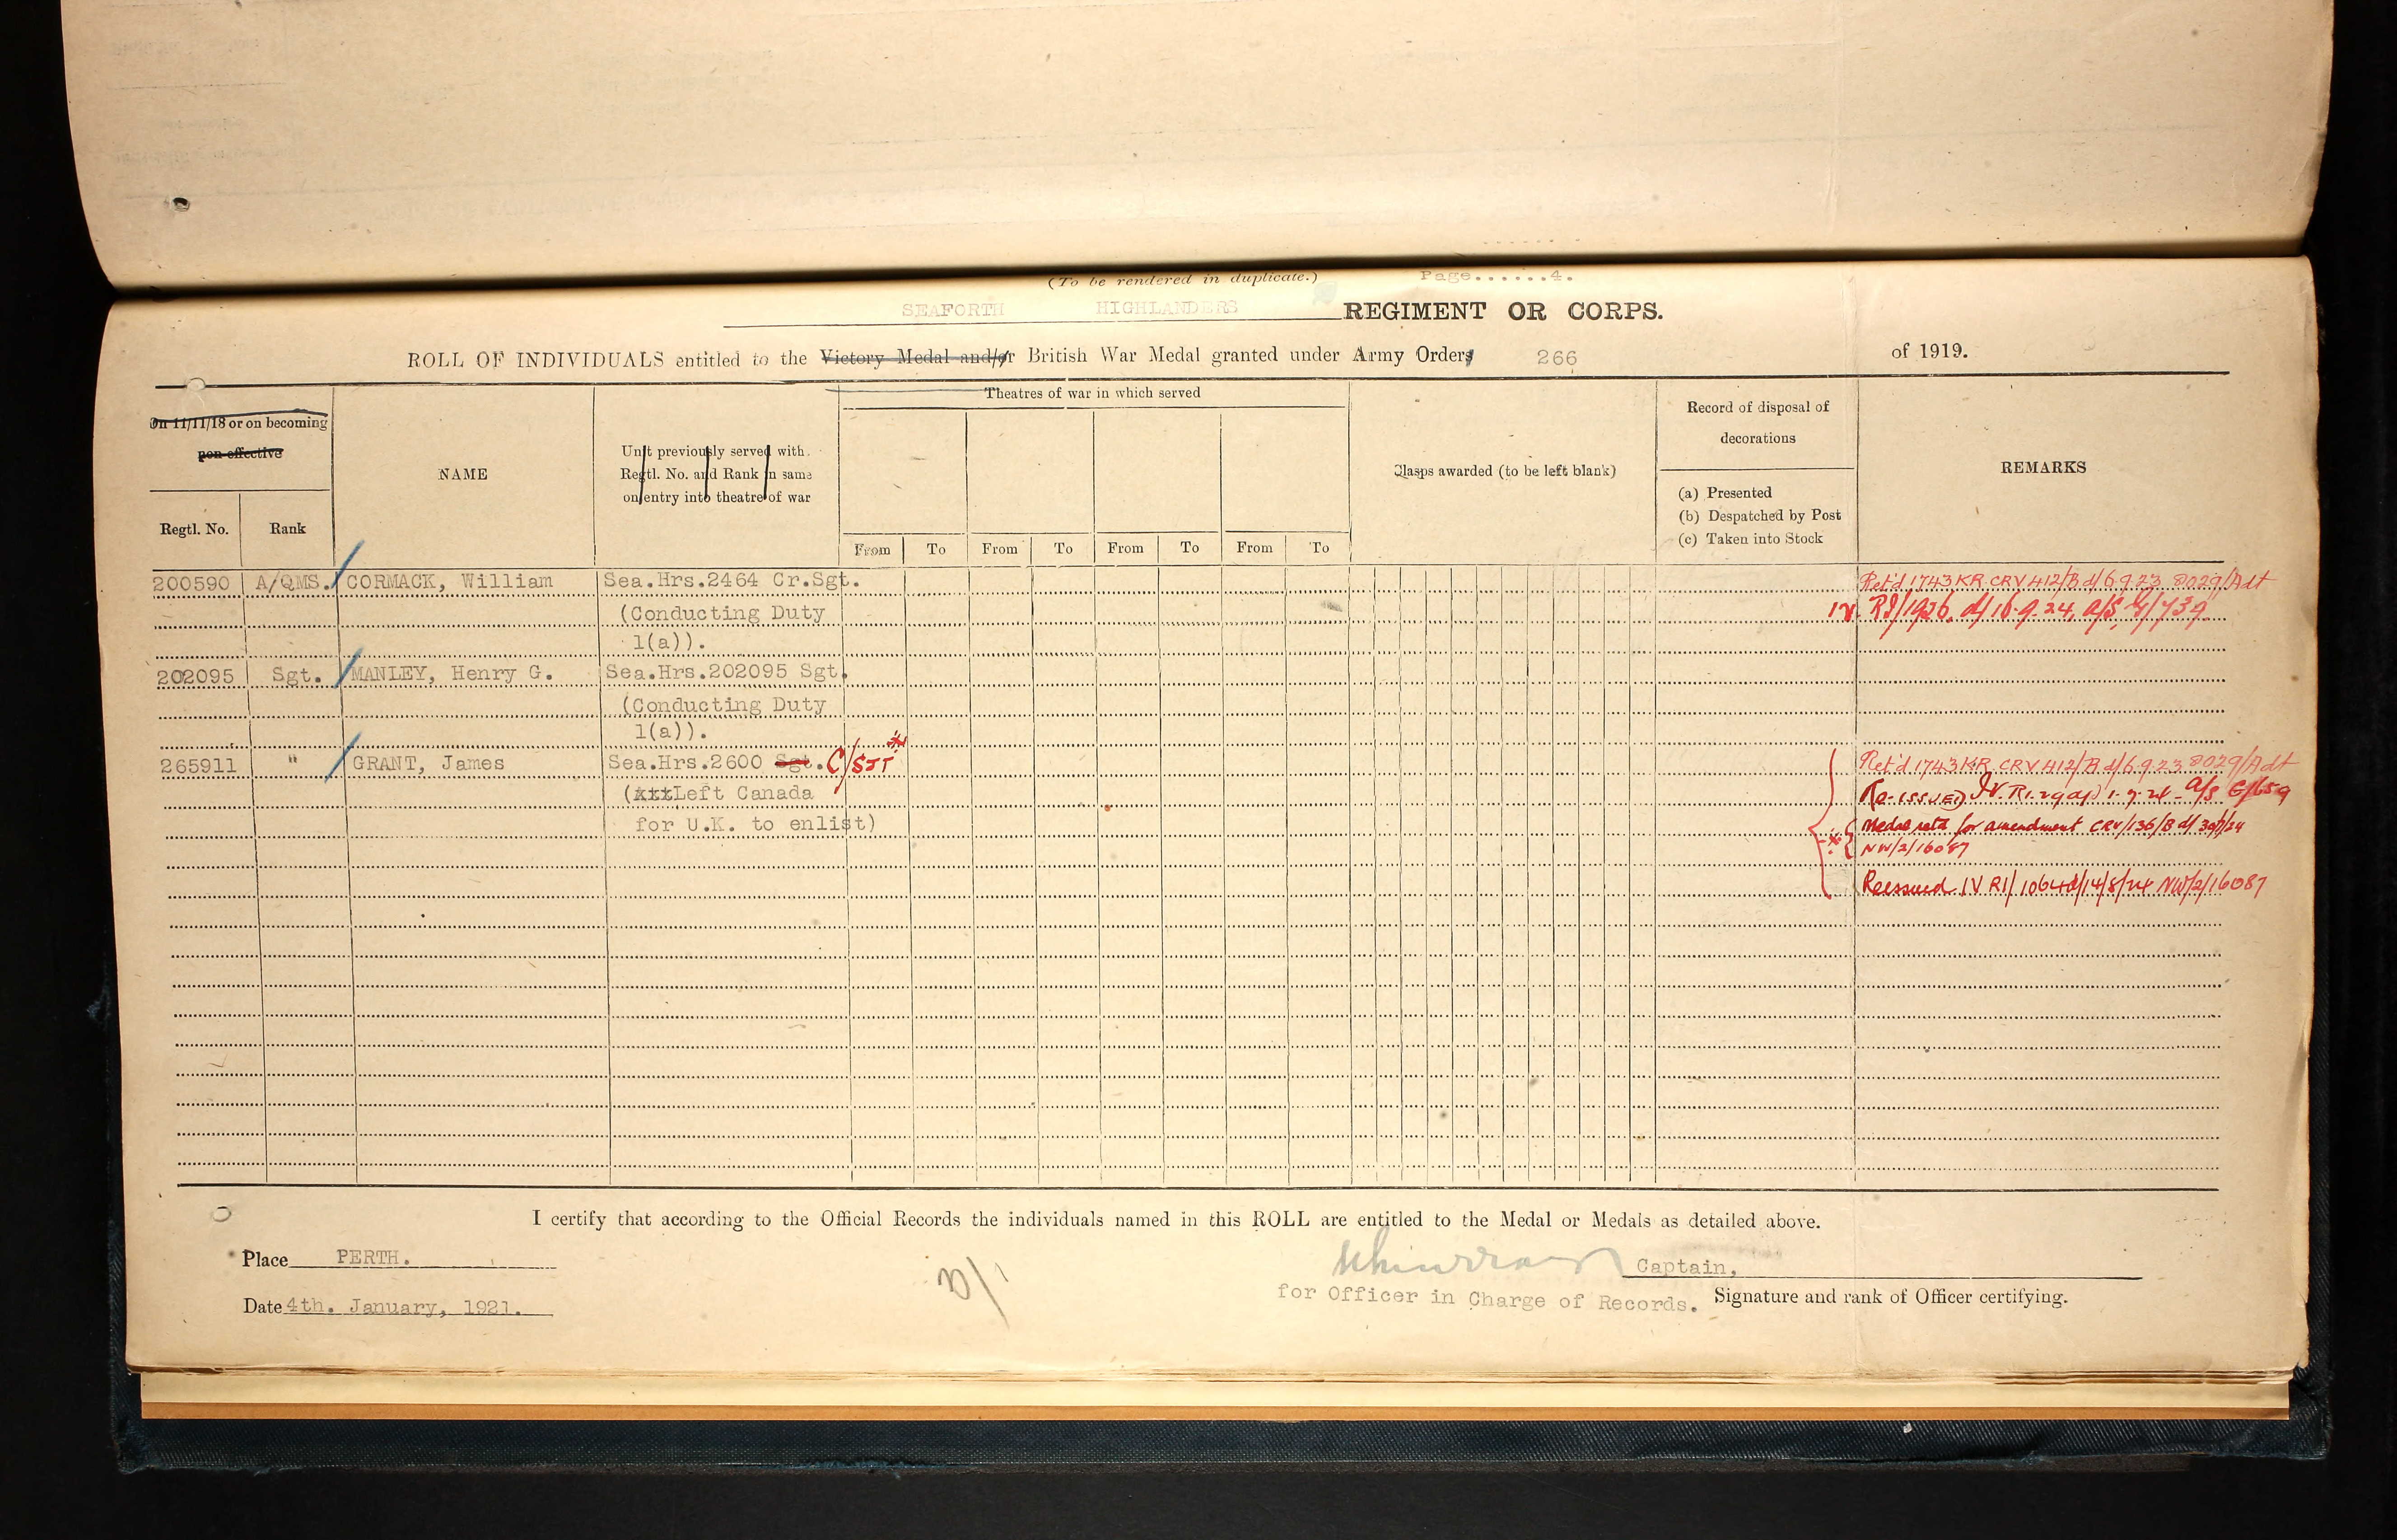 (To be rendered in duplicate.) Page......4.
SEAFORTH HIGHLANDERS REGIMENT OR CORPS.
ROLL OF INDIVIDUALS entitled to the Victory Medal and/or British War Medal granted under Army Orders 266 of 1919.
On 11/11/18 or on becoming
non-effective
Regtl. No.
Rank
NAME
Unit previously served with.
Regtl. No. and Rank in same
on entry into theatre of war
Theatres of war in which served
From To From To From To From To
Clasps awarded (to be left blank)
Record of disposal of
decorations
(a) Presented
(b) Despatched by Post
(c) Taken into Stock
REMARKS
200590 A/QMS. CORMACK, William Sea.Hrs.2464 Cr.Sgt. Ret'd 1743 KR. CRV 412/B d/6.9.23 8029/Adt
(Conducting Duty 1V. RI/1926. d/16.9.24.
1(a)).
202095 Sgt. MANLEY, Henry G. Sea.Hrs.202095 Sgt.
(Conducting Duty
1(a)).
265911 " GRANT, James Sea.Hrs.2600 Sgt. C/SJT * Ret'd 1743 KR. CRV 412/B d/6.9.23 8029/Adt
(AttLeft Canada Re-ISSUED IV. RI.
for U.K. to enlist) * Medal retd for amendment CRV/136/B d/30/7/24
NW/2/16087
Reissued IV RI/1064 d/14/8/24 NW/2/16087
I certify that according to the Official Records the individuals named in this ROLL are entitled to the Medal or Medals as detailed above.
Place PERTH.
Captain,
Date 4th. January, 1921.
for Officer in Charge of Records. Signature and rank of Officer certifying.